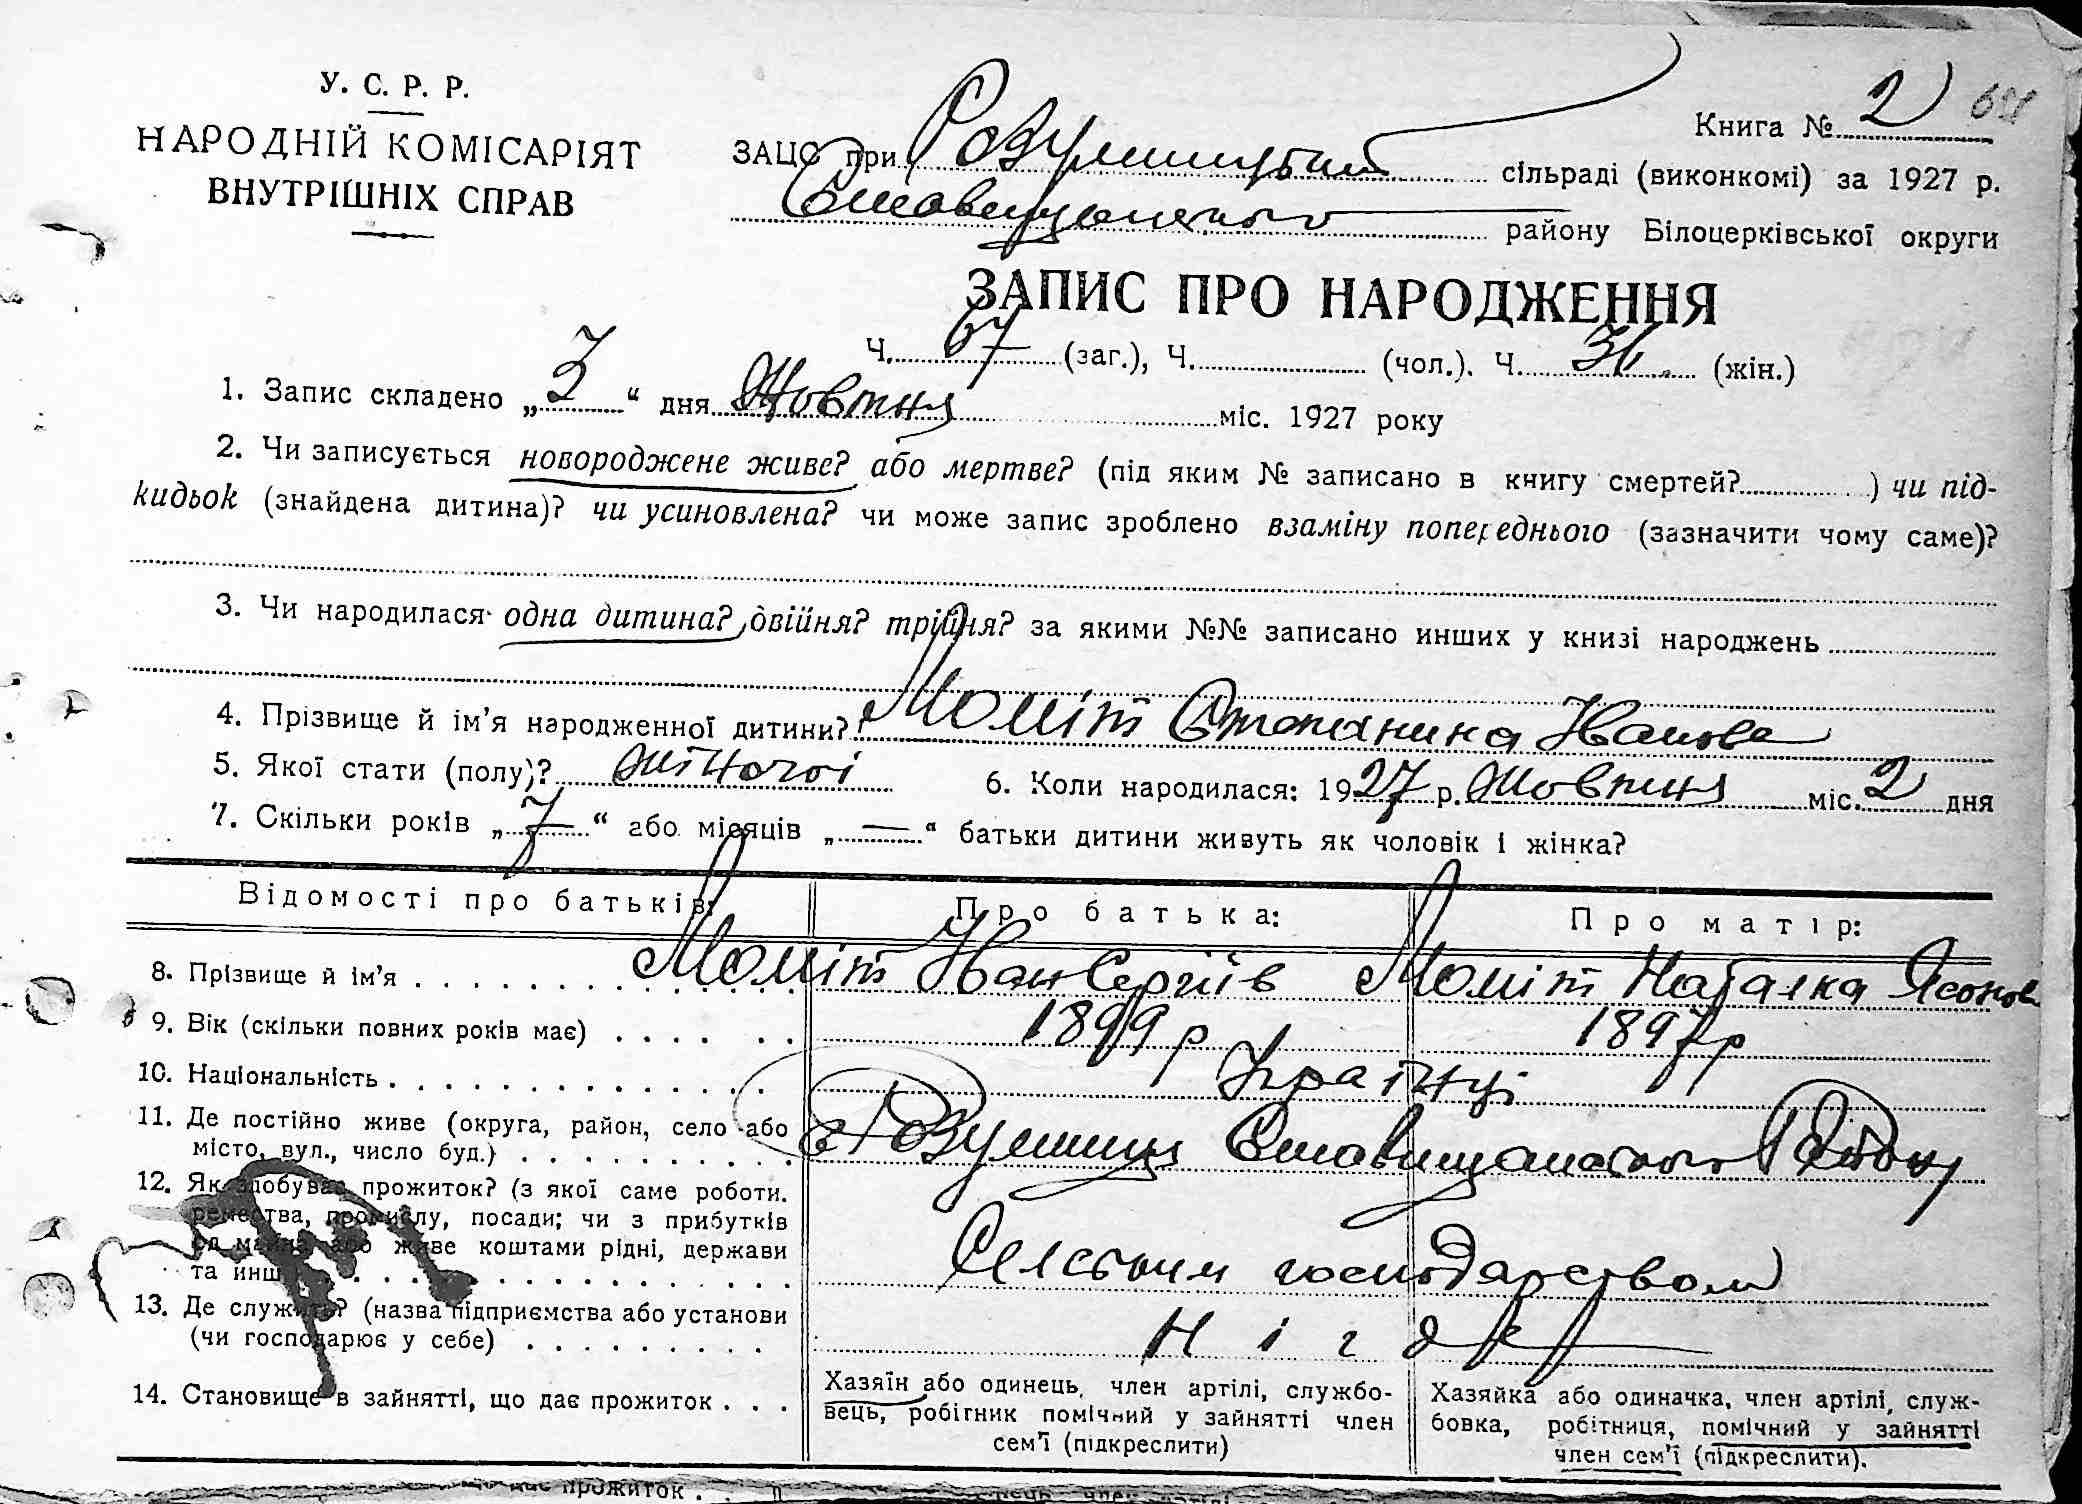 У. С. Р. Р.
НАРОДНІЙ КОМІСАРІЯТ
ВНУТРІШНІХ СПРАВ
Книга № 2
ЗАЦС при Розумницькій сільраді (виконкомі) за 1927 р.
Ставищанського району Білоцерківської округи
ЗАПИС ПРО НАРОДЖЕННЯ
Ч. 67 (заг.), Ч. (чол.). Ч. 31. (жін.)
1. Запис складено „3“ дня Жовтня міс. 1927 року
2. Чи записується новороджене живе? або мертве? (під яким № записано в книгу смертей? ) чи під-
кидьок (знайдена дитина)? чи усиновлена? чи може запис зроблено взаміну попереднього (зазначити чому саме)?
3. Чи народилася одна дитина? двійня? трійня? за якими №№ записано инших у книзі народжень
4. Прізвище й ім’я народженної дитини? Моміт Степанина Іванова
5. Якої стати (полу)? жіночої 6. Коли народилася: 1927 р. Жовтня міс. 2 дня
7. Скільки років „7“ або місяців „—“ батьки дитини живуть як чоловік і жінка?
Відомості про батьків: Про батька: Про матір:
8. Прізвище й ім’я . . . . Моміт Іван Сергіїв Моміт Наталка Ясонова
9. Вік (скільки повних років має) . . . . 1899 р 1897 р
10. Національність . . . . Українці
11. Де постійно живе (округа, район, село або
місто, вул., число буд.) . . . . с Розумниця Ставищанського Району
12. Як здобуває прожиток? (з якої саме роботи.
ремества, промислу, посади; чи з прибутків
од майна або живе коштами рідні, держави
та инш. . . . . Сільським господарством
13. Де служить? (назва підприємства або установи
(чи господарює у себе) . . . . Ніде
14. Становище в зайнятті, що дає прожиток . . .
Хазяїн або одинець, член артілі, службо-
вець, робітник помічний у зайнятті член
сем’ї (підкреслити)
Хазяйка або одиначка, член артілі, служ-
бовка, робітниця, помічний у зайнятті
член сем’ї (підкреслити).
прожиток .